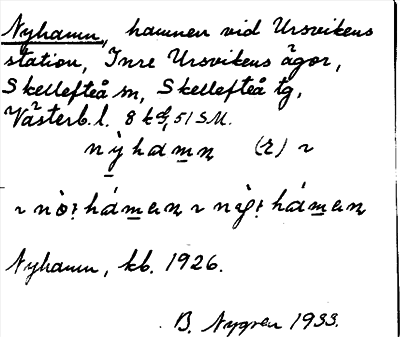 Nyhamn, hamnen vid Ursvikens
station, Inre Ursvikens ägor,
Skellefteå sn, Skellefteå tg,
Västerb.l. 8 kd, 51 S.M.
nỳhamn (2) ~
~ nò: hámen ~ nỳ: hámen
Nyhamn, kb. 1926.
B. Nygren 1933.